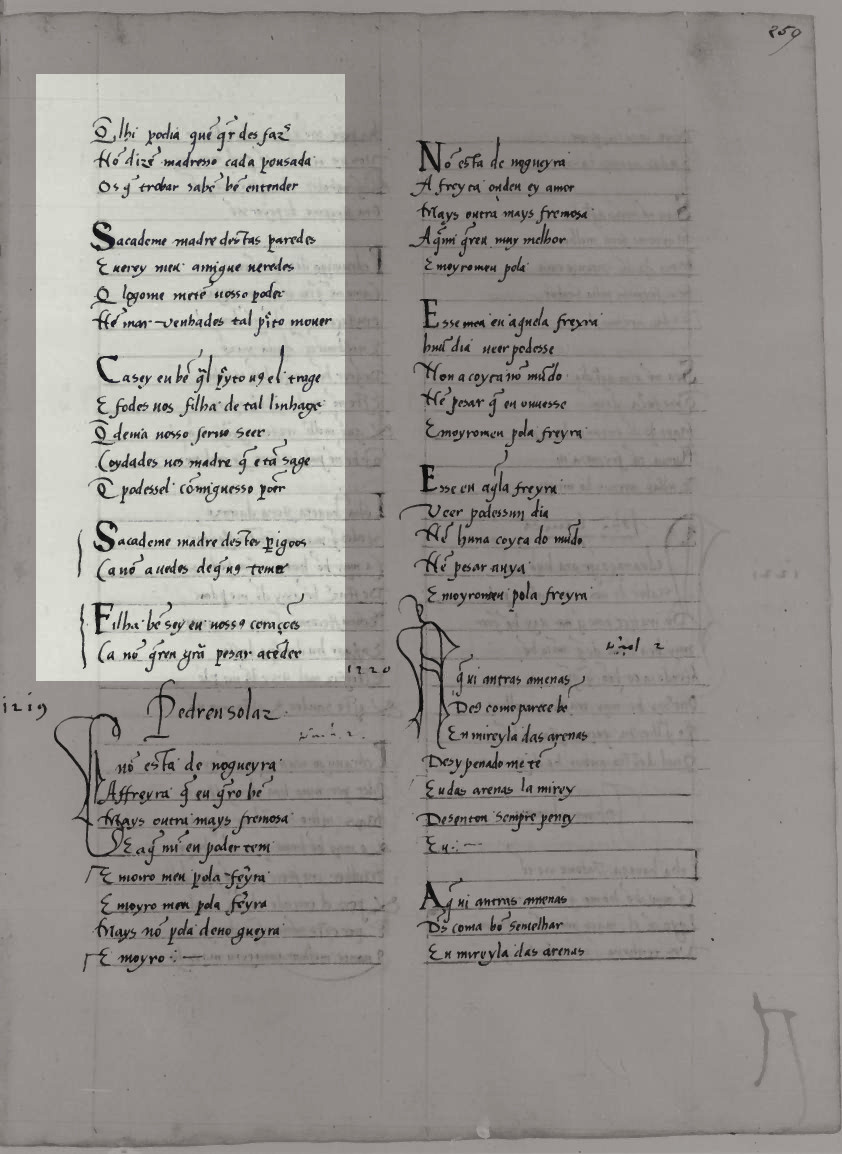 259
Q̃ lhi podia que q̃r des faz
Nō dizē madresso cada pousada
Os q̃ trobar sabē bē entender
Sacademe madre destas paredes
E uerey meu amigue ueredes
Q̃ logome metē uosso poder
Nē mar uenhades tal p̃ito mouer
Ca sey eu bē q̄l p̃yto uꝯ el trage
E sodes uos filha de tal linhage
Q̃ deuia uosso seruo seer
Coydades uos madre q̃ e tā sage
Q̃ podessel comiguesso poer
Sacademe madre destes p̃igoos
Ca nō auedes de q̃ uꝯ temer
Filha bē sey eu uossꝯ corações
Ca nō q̃ren grā pesar atēder
1219
Pedren solaz
Nō esta de nogueyra
A ffreyra q̃ eu q̃ro bē
Mays outra mays fremosa
E a q̃ mī en poder tem
E moiro meu pola freyra
E moyro meu pola freyra
Mays nō pola de no gueyra
E moyro
Nō esta de nogueyra
A freyra onden ey amor
Mays outra mays fremosa
A q̃mi q̃reu muy melhor
E moyromeu pola
E sse mea eu aquela freyra
hunū dia ueer podesse
Non a coyta nō mūdo
Nē pesar q̃ eu ouuesse
E moyromeu pola freyra
E sse eu aq̄la freyra
Ueer podessun dia
Nē huna coyta do mūdo
Nē pesar auya
E moyromeu pola freyra
1220
Aq̃ ui antras amenas
Deꝯ como parece bē
E u mireyla das arenas
Desy penado me tē
Eu das arenas la mirey
Desenton sempre peney
Eu
A q̃ ui antras amenas
Dꝯ coma bō semelhar
E u mireyla das arenas